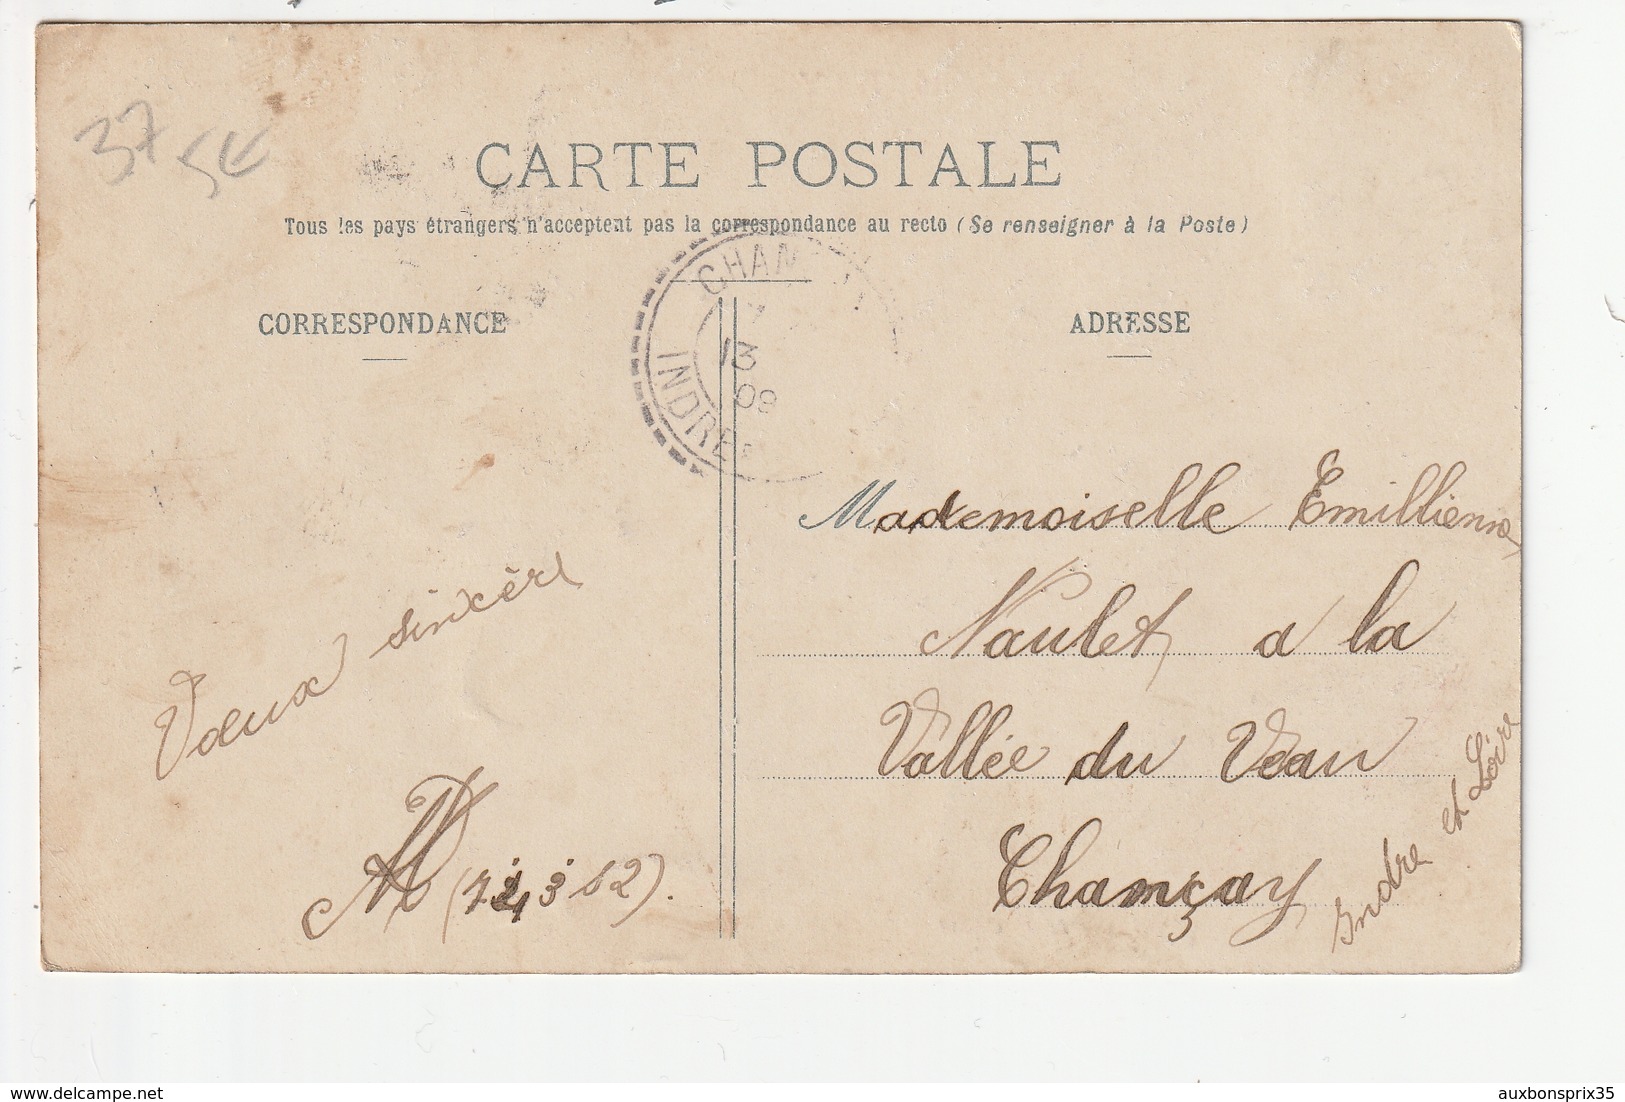 37 5€
CARTE POSTALE
Tous les pays étrangers n'acceptent pas la correspondance au recto (Se renseigner à la Poste)
CORRESPONDANCE
ADRESSE
CHAN
13
09
INDRE
Mademoiselle Emillienne
Naulet a la
Vallée du Veau
Chançay
Indre et Loire
Vœux sincère
auxbonsprix35